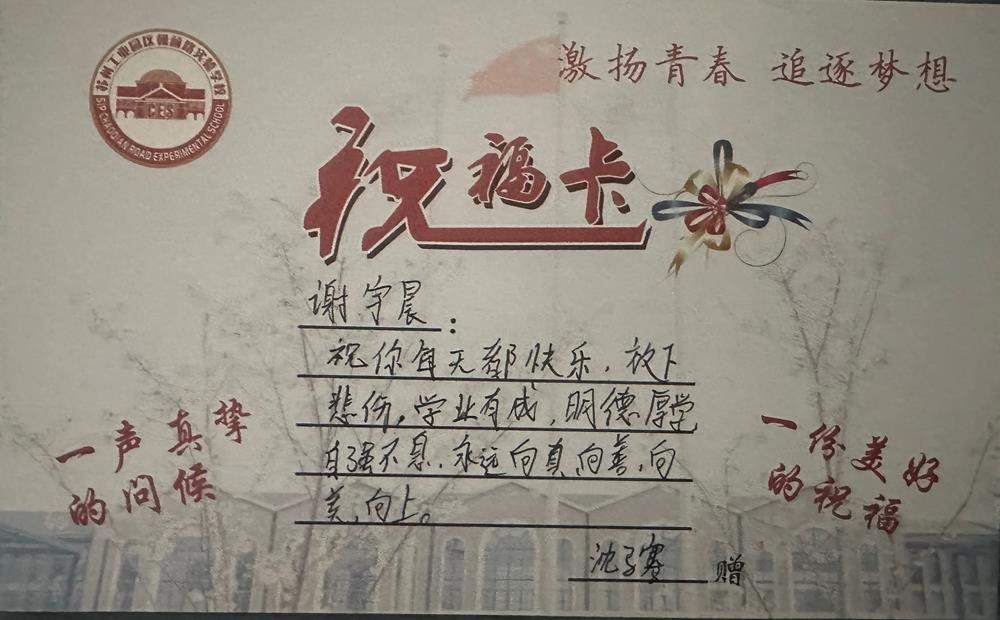 苏州工业园区朝前路实验学校
CES
SIP CHAOQIAN ROAD EXPERIMENTAL SCHOOL
激扬青春 追逐梦想
祝福卡
谢宇晨：
祝你每天都快乐，放下
悲伤。学业有成，明德厚学
自强不息，永远向真向善，向
美，向上。
沈子骞 赠
一声真挚
的问候
一份美好
的祝福